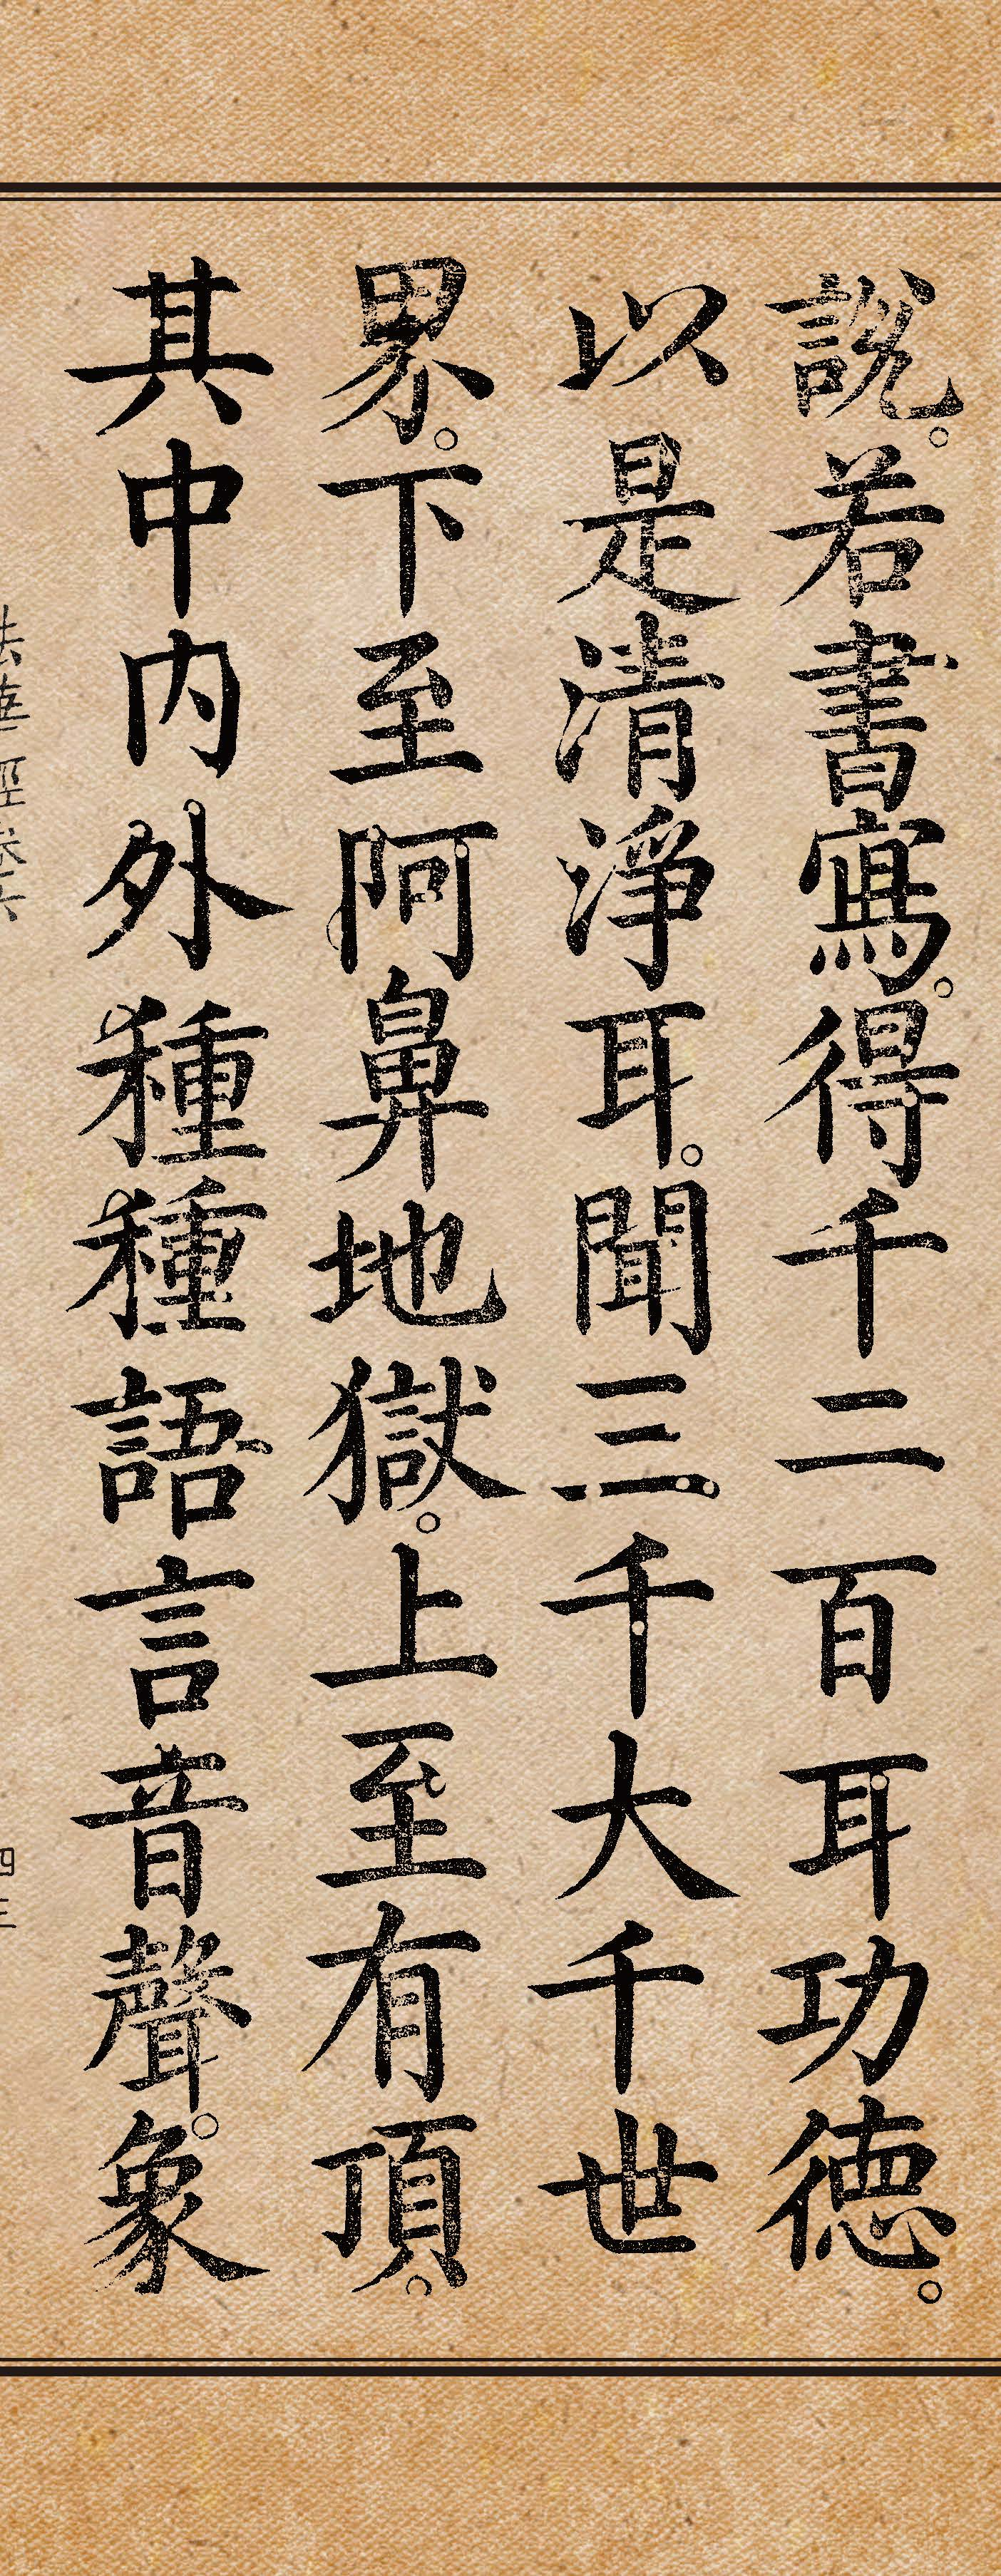 說。若書寫。得千二百耳功德。
以是清淨耳。聞三千大千世
界。下至阿鼻地獄。上至有頂。
其中內外種種語言音聲。象
法華經卷六
四三